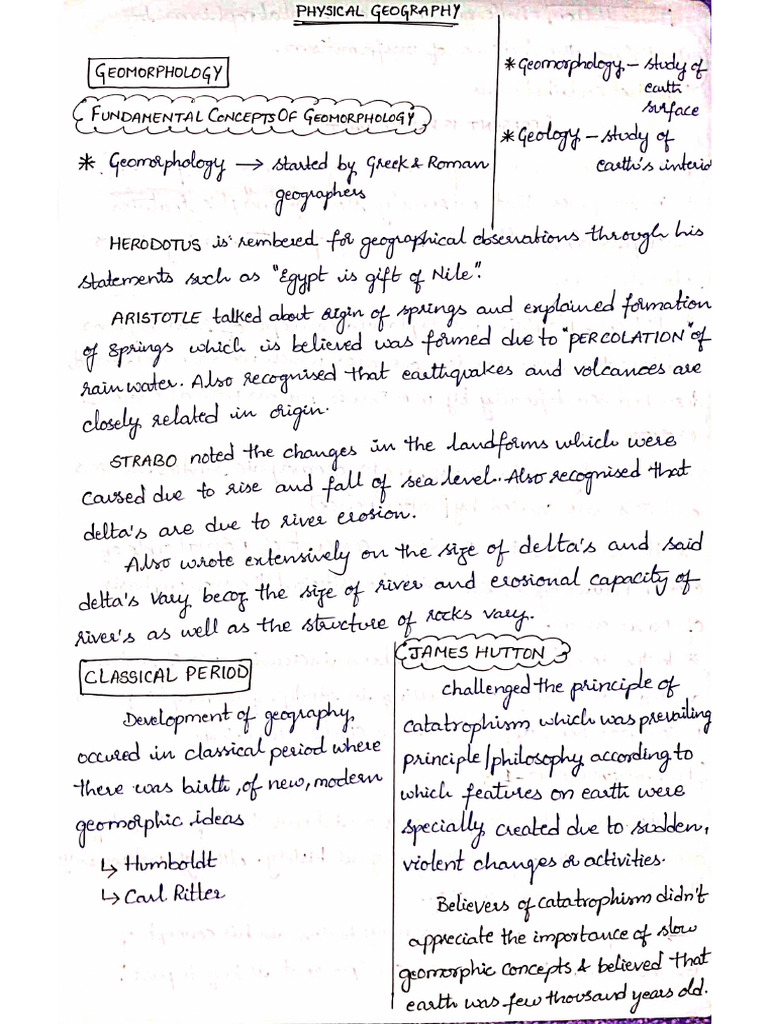 PHYSICAL GEOGRAPHY
GEOMORPHOLOGY
FUNDAMENTAL CONCEPTS OF GEOMORPHOLOGY
* Geomorphology → started by Greek & Roman
geographers
* Geomorphology - study of
earth
surface
* Geology - study of
earth's interio
HERODOTUS is rembered for geographical observations through his
statements such as "Egypt is gift of Nile".
ARISTOTLE talked about origin of springs and explained formation
of springs which is believed was formed due to "PERCOLATION" of
rain water. Also recognised that earthquakes and volcanoes are
closely related in origin.
STRABO noted the changes in the landforms which were
caused due to rise and fall of sea level. Also recognised that
delta's are due to river erosion.
Also wrote extensively on the size of delta's and said
delta's vary becoz the size of river and erosional capacity of
river's as well as the structure of rocks vary.
CLASSICAL PERIOD
Development of geography,
occured in classical period where
there was birth, of new, modern
geomorphic ideas
↳ Humboldt
↳ Carl Ritler
JAMES HUTTON
challenged the principle of
catatrophism which was prevailing
principle/philosophy according to
which features on earth were
specially created due to sudden,
violent changes or activities.
Believers of catatrophism didn't
appreciate the importance of slow
geomorphic concepts & believed that
earth was few thousand years old.